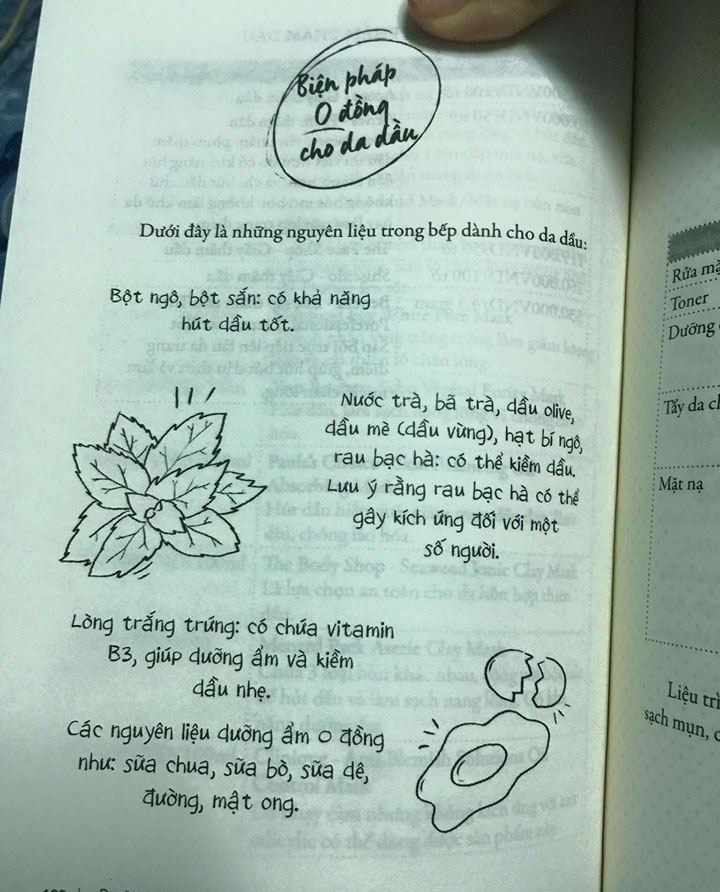 Biện pháp
0 đồng
cho da dầu
Dưới đây là những nguyên liệu trong bếp dành cho da dầu:
Bột ngô, bột sắn: có khả năng
hút dầu tốt.
Nước trà, bã trà, dầu olive,
dầu mè (dầu vừng), hạt bí ngô,
rau bạc hà: có thể kiềm dầu.
Lưu ý rằng rau bạc hà có thể
gây kích ứng đối với một
số người.
Lòng trắng trứng: có chứa vitamin
B3, giúp dưỡng ẩm và kiềm
dầu nhẹ.
Các nguyên liệu dưỡng ẩm 0 đồng
như: sữa chua, sữa bò, sữa dê,
đường, mật ong.
Rửa mặ
Toner
Dưỡng
Tẩy da c
Mặt nạ
Liệu trì
sạch mụn,